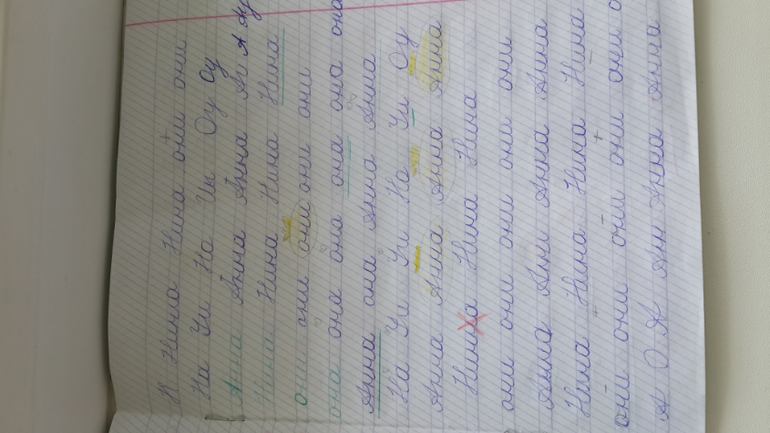 Н Нина Нина они они
На Уи На Ны Оу Оу
Анна Анна Анна Аг А Ау
Нина Нина Нина Нина
они они они они они
она она она она она она
Анна она Анна Анна
На Уи Уи На Уи Оу
Анна Анна Анна Анна
Нина Нина Нина
они они они они они
Анна Анн Анна Анна
Нина Нина Нина Нина
они они они они они о
А О А Анн Анна Анна